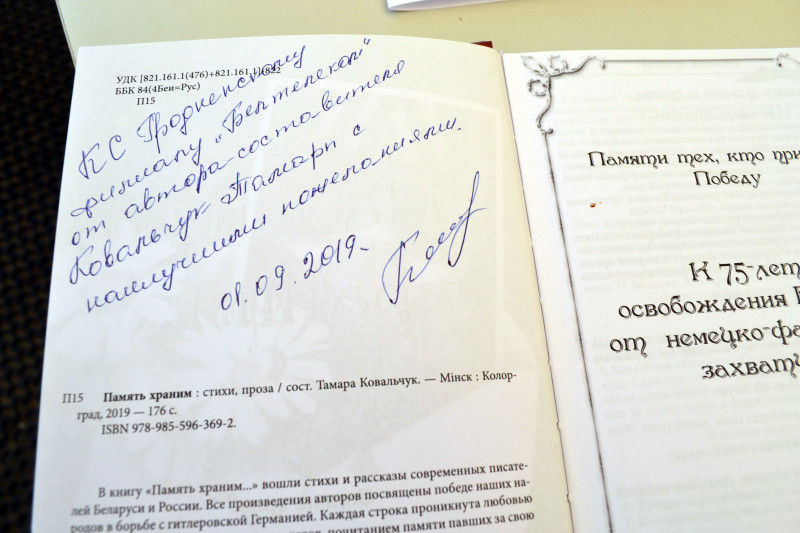 УДК [821.161.1(476)+821.161.1]-822
ББК 84(4Беи=Рус)
П15
КС Гродненскому
филиалу "Белтелеком"
от автора-составителя
Ковальчук Тамары с
наилучшими пожеланиями.
01.09.2019
П15 Память храним : стихи, проза / сост. Тамара Ковальчук. — Мінск : Колор-
град, 2019 — 176 с.
ISBN 978-985-596-369-2.
В книгу «Память храним...» вошли стихи и рассказы современных писате-
лей Беларуси и России. Все произведения авторов посвящены победе наших на-
родов в борьбе с гитлеровской Германией. Каждая строка проникнута любовью
почитанием памяти павших за свою
Памяти тех, кто при
Победу
К 75-лет
освобождения Б
от немецко-фа
захвати